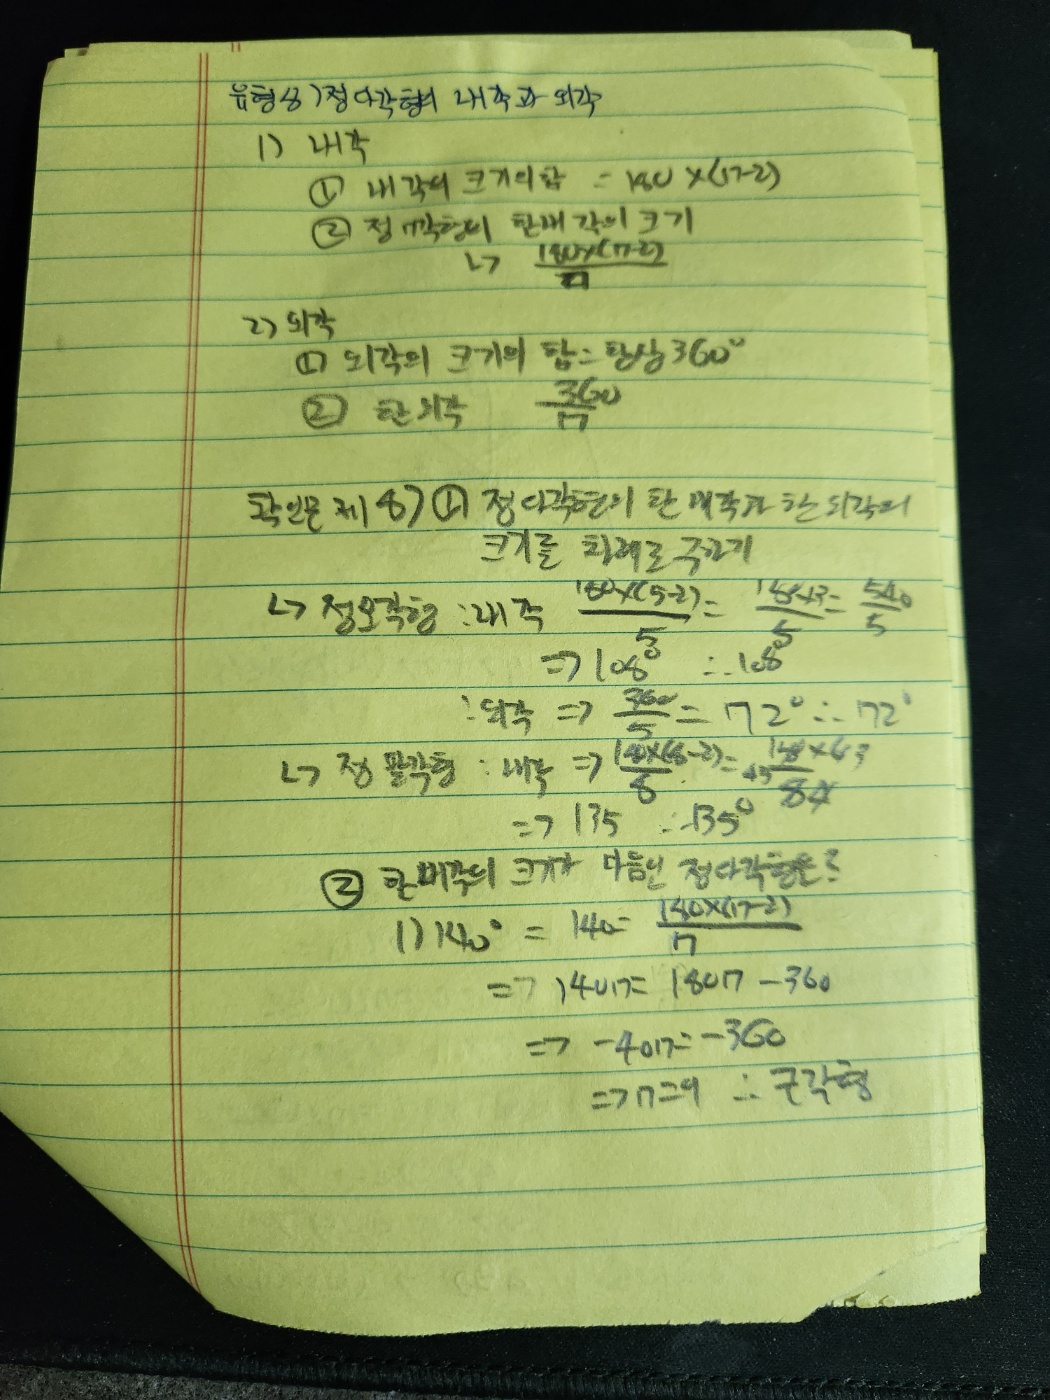 유형8) 정다각형의 내각과 외각
1) 내각
① 내각의 크기의 합 = 180×(n-2)
② 정n각형의 한 내각의 크기
↳ 180×(n-2)/n
2) 외각
① 외각의 크기의 합 = 항상 360°
② 한 외각 360/n
확인문제 8) ① 정다각형의 한 내각과 한 외각의
크기를 차례로 구하기
↳ 정오각형 : 내각 180×(5-2)/5 = 180×3/5 = 540/5
=> 108° ∴ 108°
: 외각 => 360/5 = 72° ∴ 72°
↳ 정팔각형 : 내각 => 180×(8-2)/8 = 45 180×6 3/8 4
=> 135 ∴ 135°
② 한 내각의 크기가 다음인 정다각형은?
1) 140° = 140 = 180×(n-2)/n
=> 140n = 180n - 360
=> -40n = -360
=> n = 9 ∴ 구각형